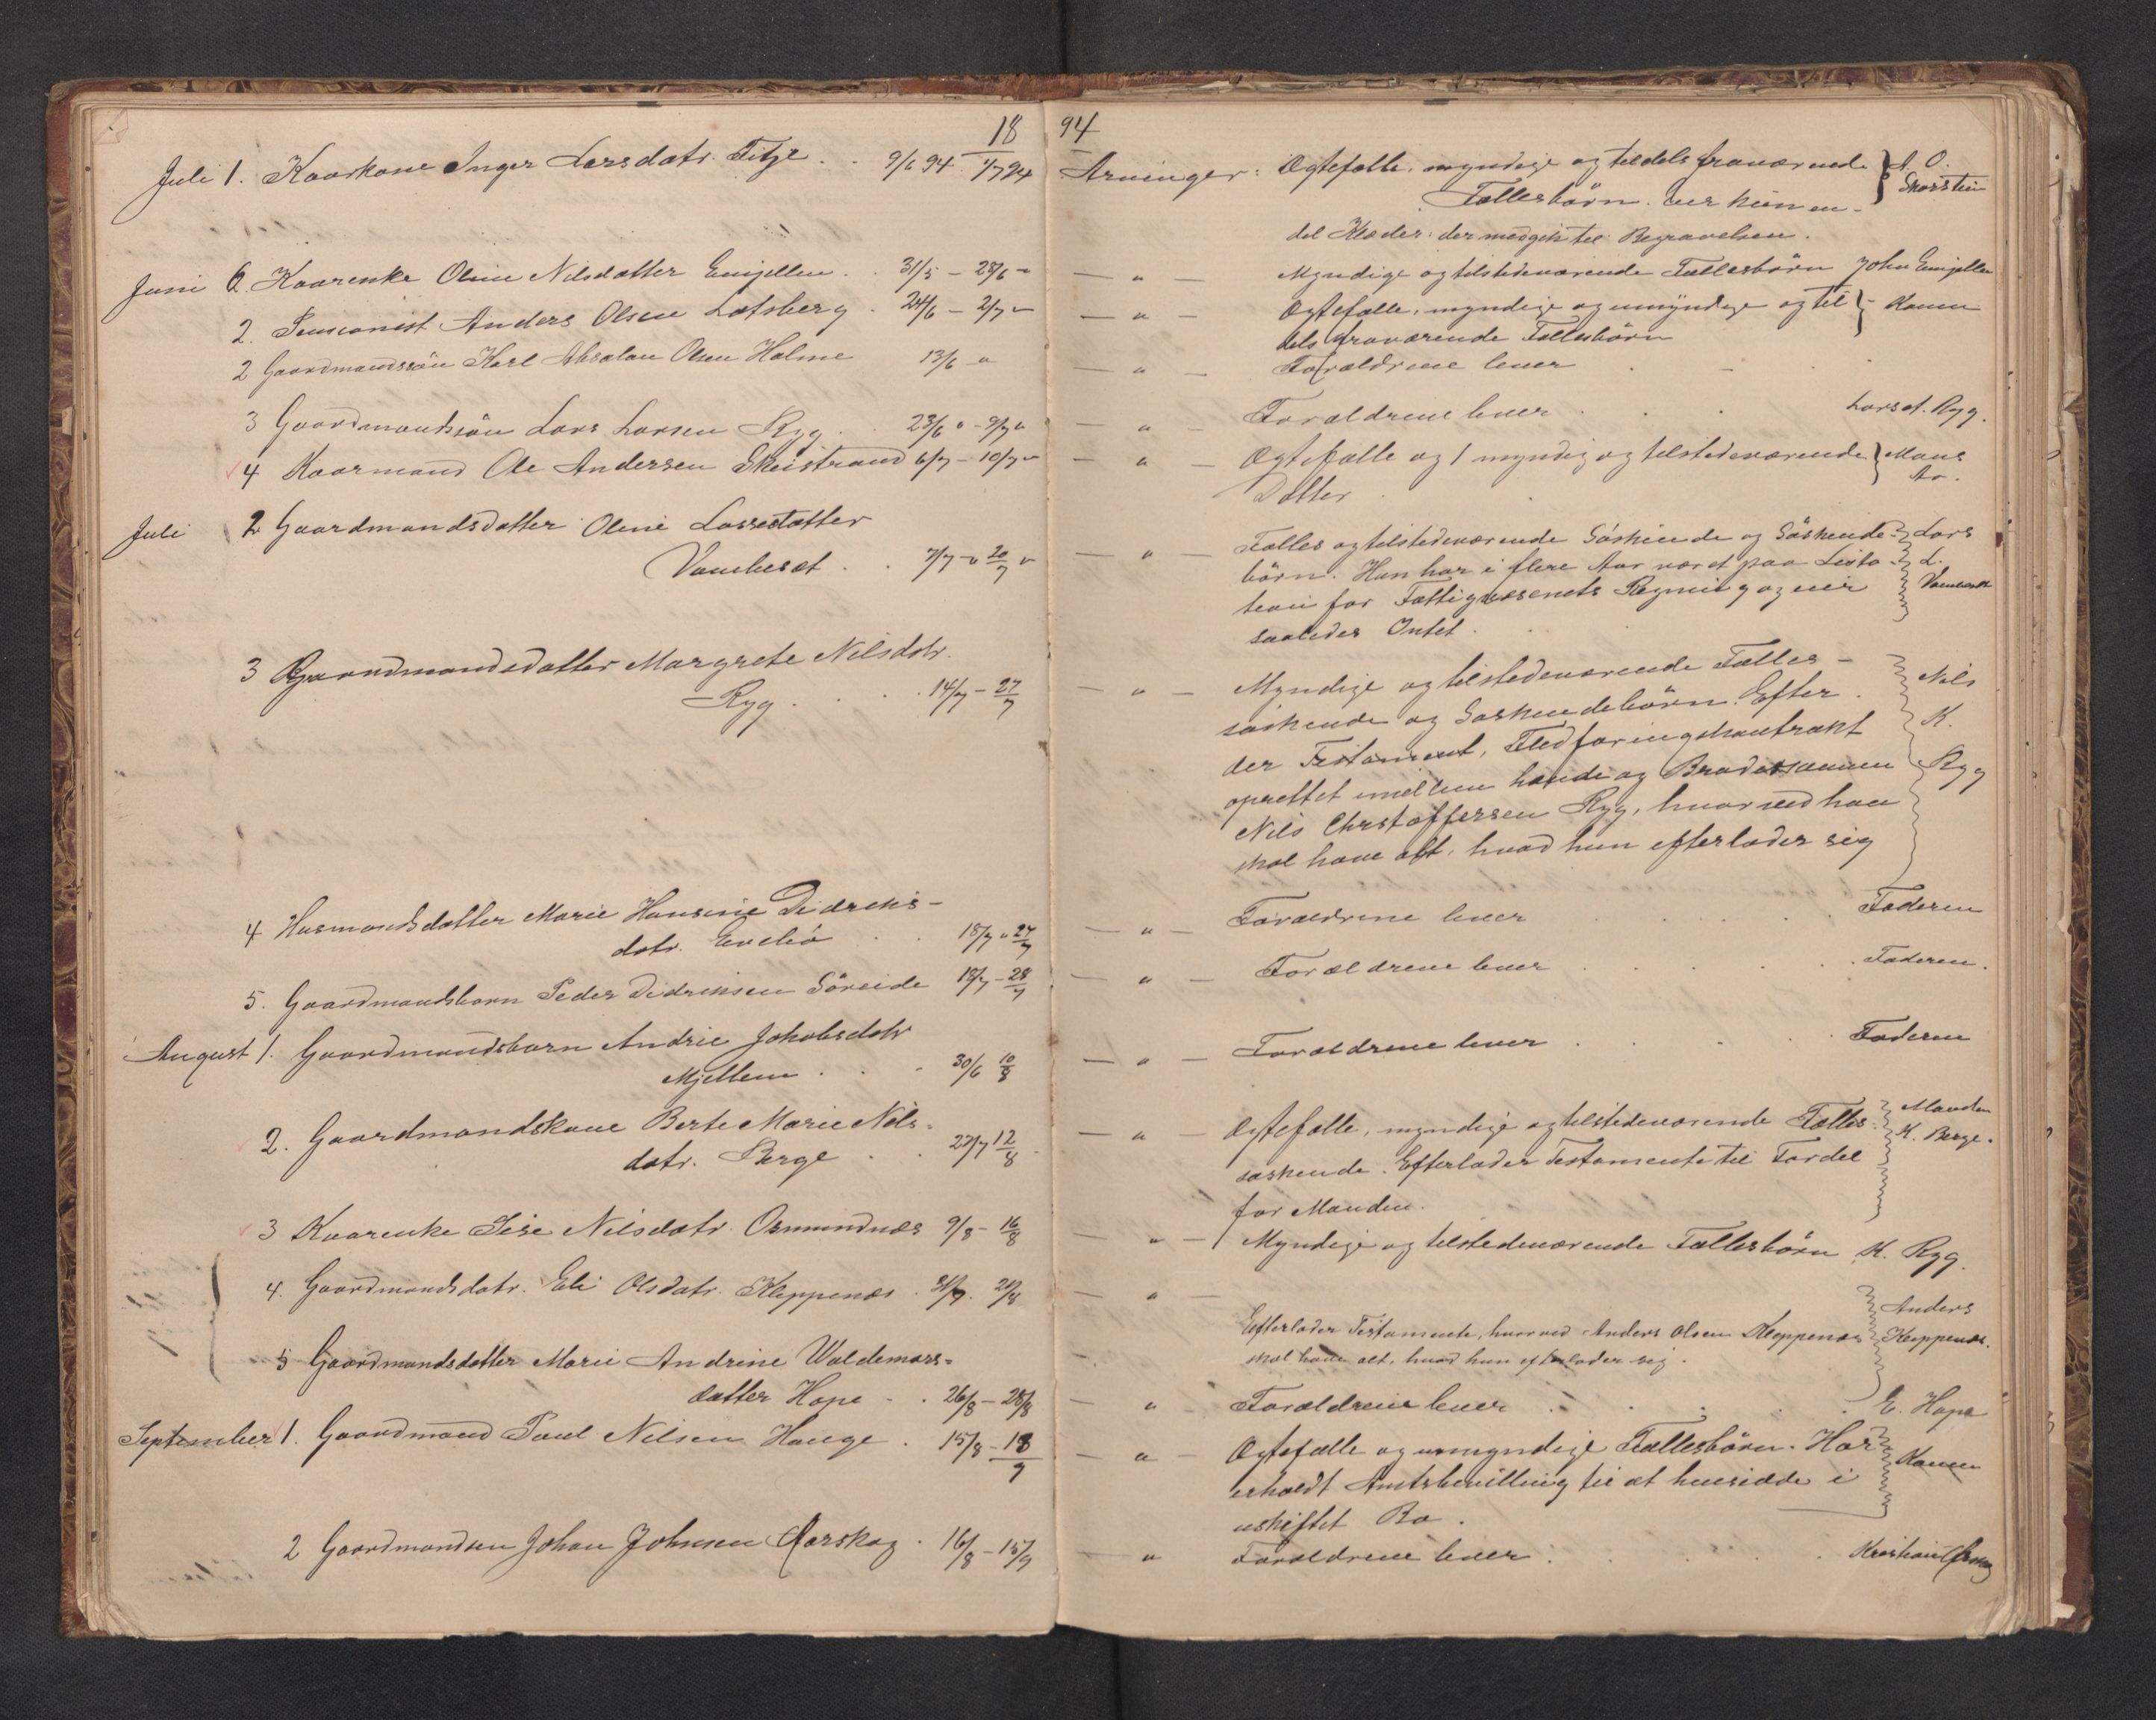 18 94
Juli 1. Kaarkone Inger Larsdatr. Fitje . . 9/6 94 1/7 94
Arvinger: Ægtefælle, myndige og tildels fraværende
Fællesbörn. Eier kun en-
del Klæder: der medgik til Begravelsen.
O.
Juni 6. Kaarenke Oline Nilsdatter . 31/5 - 28/6 "
— " — Myndige og tilstedeværende Fællesbörn John
2. Pensionist Anders Olsen Lotsberg . 24/6 - 2/7 "
— " — Ægtefælle, myndige og umyndige og til- Konen
dels fraværende Fællesbörn
2 Gaardmandssön Karl Absalon Olsen Holme 13/6 "
— " — Forældrene lever
3 Gaardmandssön Lars Larsen Ryg . 23/6 " - 9/7 "
— " — Forældrene lever . . . Lars A. Ryg.
4 Kaarmand Ole Andersen Skeistrand 6/7 - 10/7 "
— " — Ægtefælle og 1 myndig og tilstedeværende
Datter
Juli 2 Gaardmandsdatter Oline Lassesdatter
. . 7/7 - " 20/7 "
— " — Fælles og tilstedeværende Söskende og Söskende- Lars
börn. Hun har i flere Aar været paa L.
for Fattigvæsenets Regning og eier
saaledes Intet.
3 Gaardmandsdatter Margrete Nilsdatr.
Ryg . . . 14/7 - 27/7
— " — Myndige og tilstedeværende Fælles- Nils
söskende og Söskendebörn. Efter- K.
der Testament, Fledföringskontrakt Ryg
oprettet imellem hende og Brodersönnen
Nils Christoffersen Ryg, hvorved han
skal have alt, hvad hun efterlader sig
4 Husmandsdatter Marie Hansine Didriks-
datr. . . 18/7 " 27/7
— " — Forældrene lever . . . Faderen
5. Gaardmandsbarn Peder Didriksen Söreide 18/7 - 28/7
— " — Forældrene lever . . . Faderen.
August 1. Gaardmandsbarn Andrie Jakobsdatr
Mjellem . . . 30/6 10/8
— " — Forældrene lever . . . Faderen
2. Gaardmandskone Berte Marie Nils-
datr. Berge . . 27/7 12/8
— " — Ægtefælle, myndige og tilstedeværende Fælles- Manden
söskende. Efterlader Testamente til Fordel K. Berge.
for Manden.
3 Kaarenke Sise Nilsdatr. Osmundnæs 9/8 - 16/8
— " — Myndige og tilstedeværende Fællesbörn K. Ryg.
4. Gaardmandsdatr. Eli Olsdatr. Kleppenæs . 31/7. 21/8
— " — Anders
Efterlader Testamente, hvorved Anders Olsen Kleppenæs Kleppenæs.
skal have alt, hvad hun efterlader sig.
5 Gaardmandsdatter Marie Andrine Waldemars-
datter Hope . . 26/8 - 28/8
— " — Forældrene lever . . . E. Hope
September 1. Gaardmand Paul Nilsen Hauge . 15/8 - 13/9
— " — Ægtefælle og umyndige Fællesbörn. Har Konen
erholdt Amtsbevilling til at hensidde i
uskiftet Bo.
2 Gaardmandsen Johan Johnsen Aarskog . 16/8 - 15/9
" Forældrene lever . . . Kristian